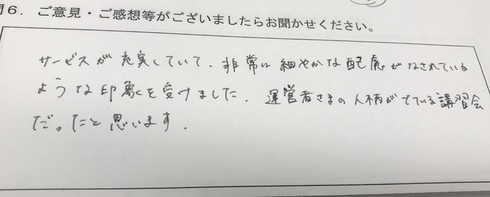 問6．ご意見・ご感想等がございましたらお聞かせください。
サービスが充実していて、非常に細やかな配慮がなされている
ような印象を受けました。運営者さまの人柄がでている講習会
だったと思います。